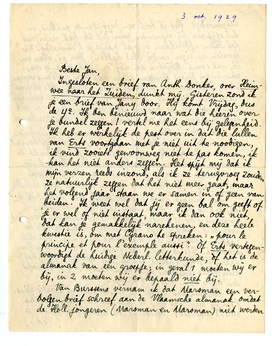 3 oct. 1929
Beste Jan,
Ingesloten een brief van Anth. Donker, over Hein-
wee naar het Zuiden, dunkt mij. Gisteren zond ik
je een brief van Jany door. Hij komt Vrijdag, dus
de 4e. Ik ben benieuwd naar wat die heeren over
je bundel zeggen! vertel me het eens bij gelegenheid.
Ik heb er werkelijk de pest over in dat die lullen
van Erts voortgaan met je niet uit te noodigen,
ik vind zooiets gewoonweg niet te pas komen, ik
kan het niet anders zeggen. Het spijt mij dat ik
mijn verzen reeds inzond, als ik ze terugvroeg zouden
ze natuurlijk zeggen dat het niet meer gaat, maar
het volgend jaar staan we er samen in of geen van
beiden. Ik weet wel dat jij er geen bal om geeft of
je er wel of niet instaat, maar ik dan ook niet,
dat kan je gemakkelijk narekenen, en deze heele
kwestie is, om met Cyrano te spreken: „pour le
principe et pour l'exemple aussi" Of Erts vertegen-
woordigt de huidige Nederl. Letterkunde, of het is de
almanak van een groepje; in geval 1 moeten wij er
bij, in 2 moeten wij er bepaald niet bij.
Van Burssens vernam ik dat Marsman een ver-
bolgen brief schreef aan de Vlaamsche almanak omdat
de Holl. jongeren (Marsman en Marsman) niet werden